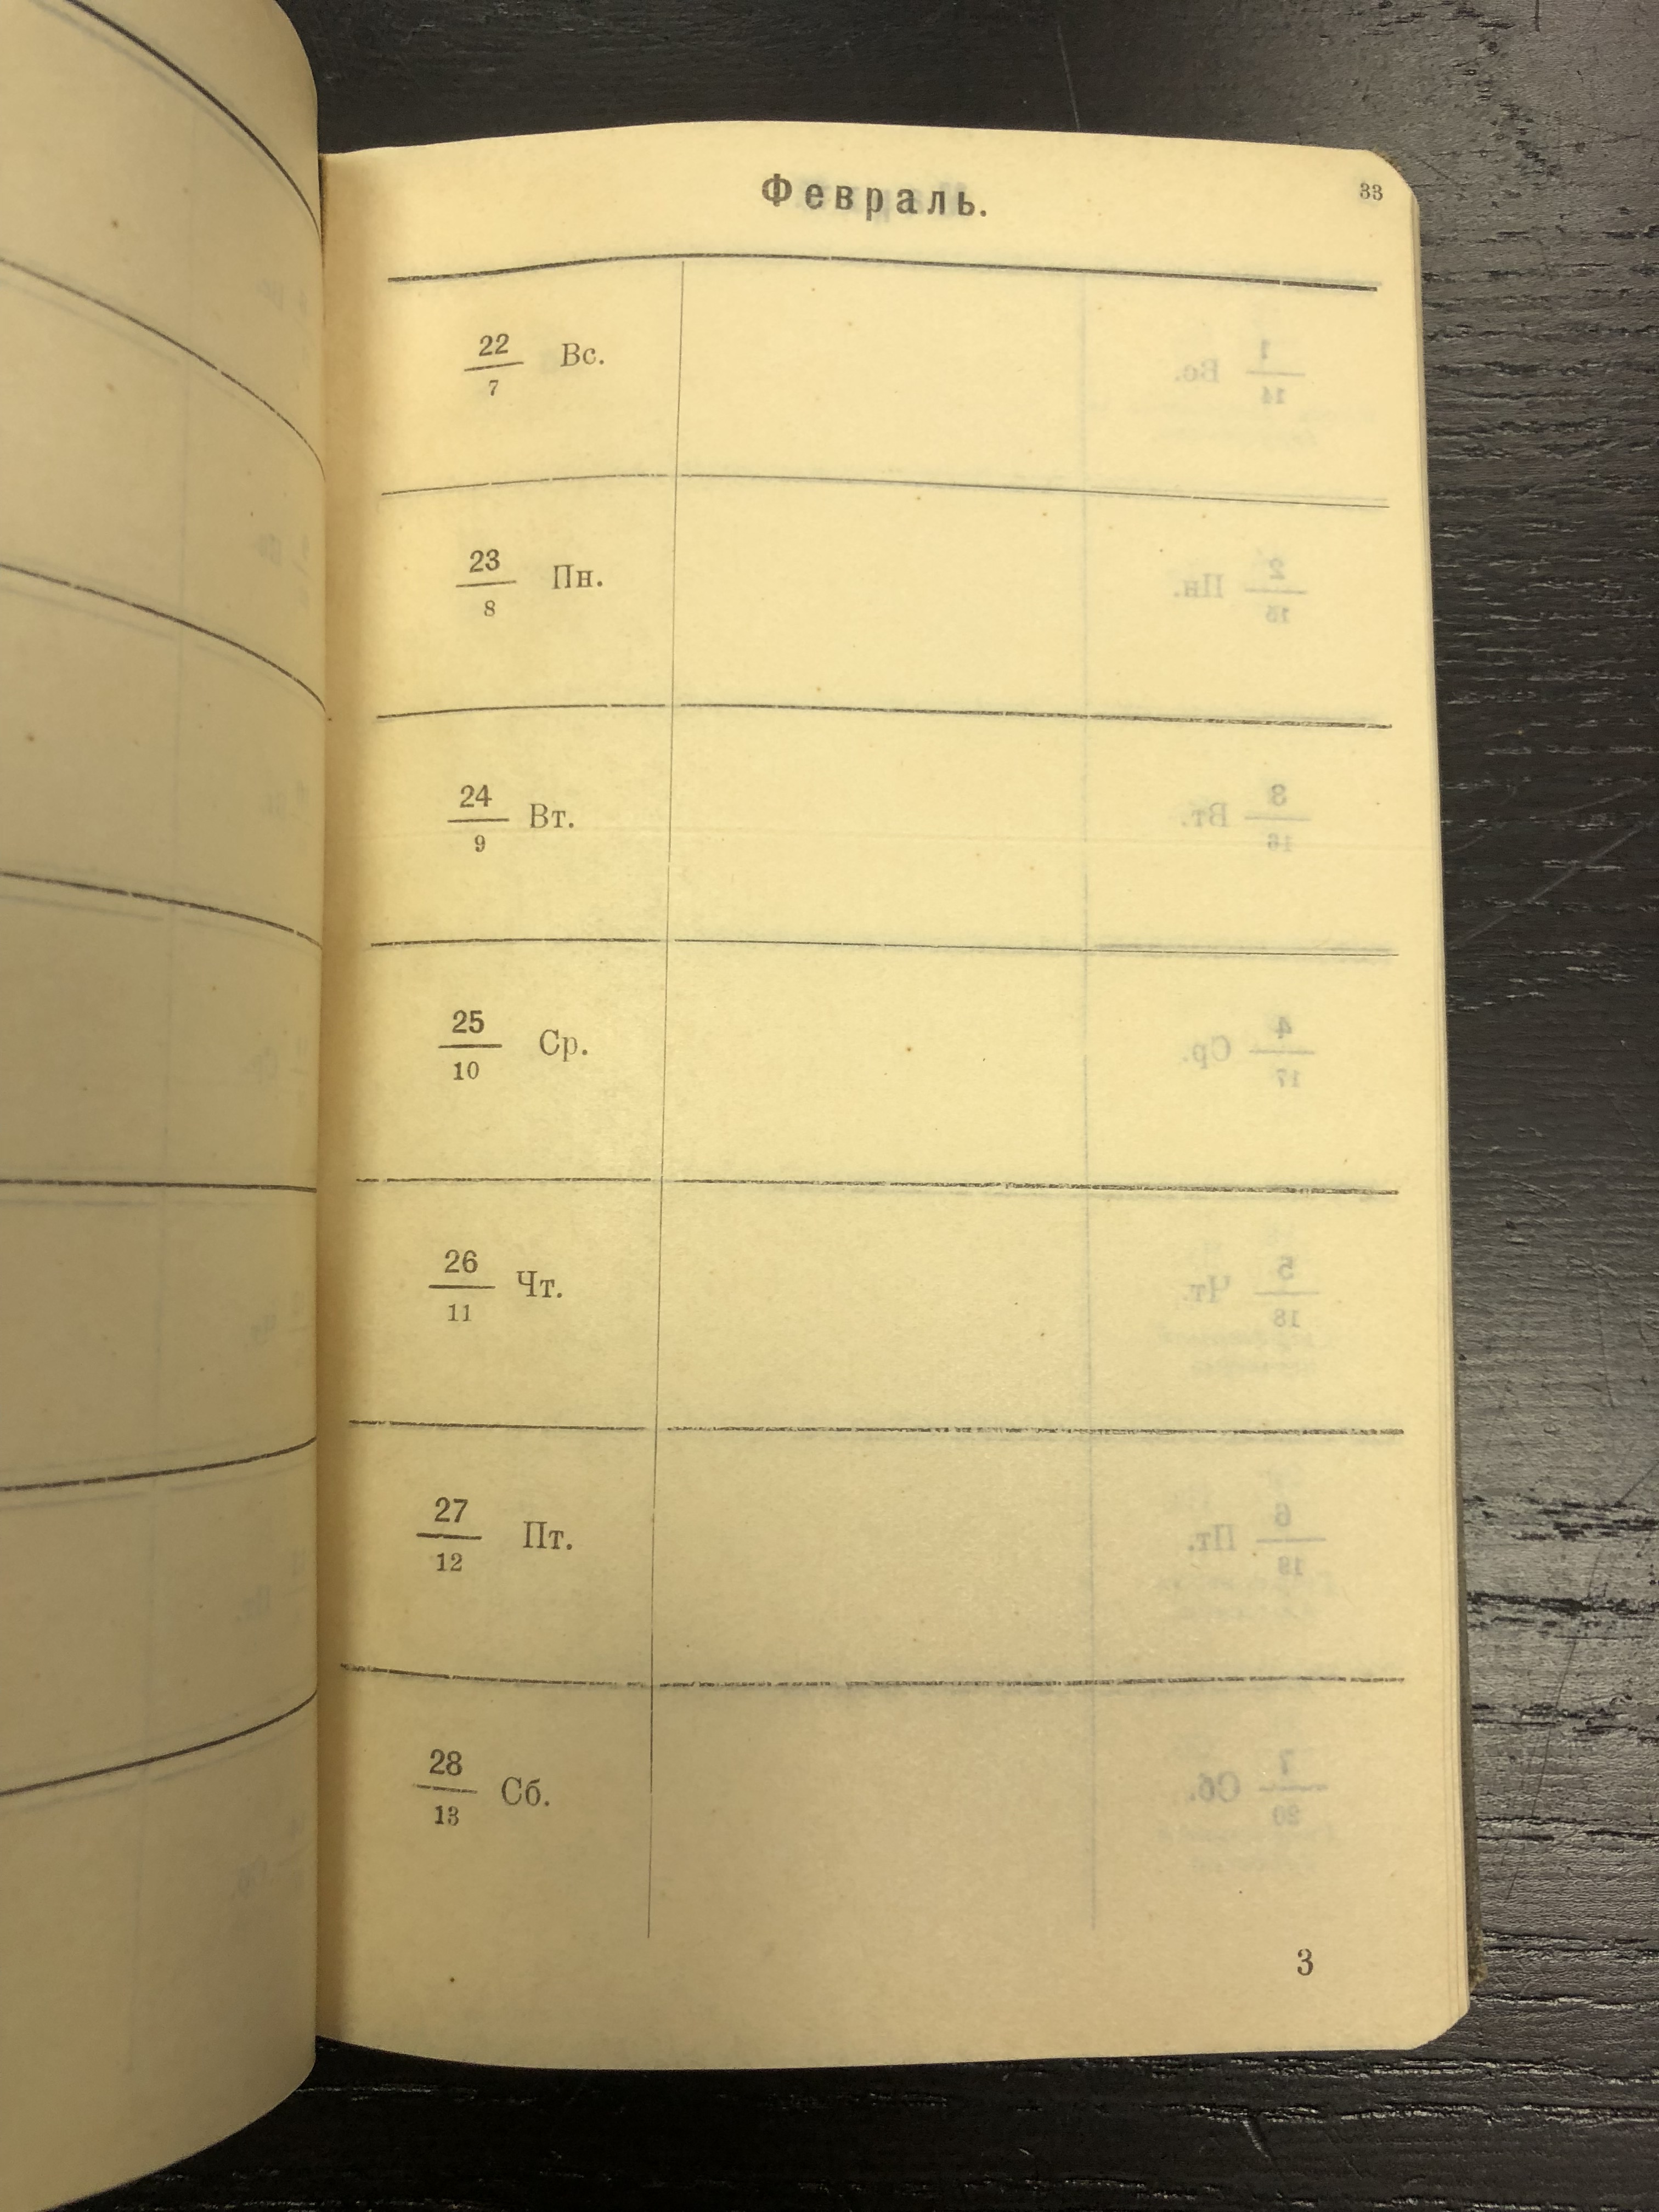 Февраль.
33
22
7
Вс.
23
8
Пн.
24
9
Вт.
25
10
Ср.
26
11
Чт.
27
12
Пт.
28
13
Сб.
3